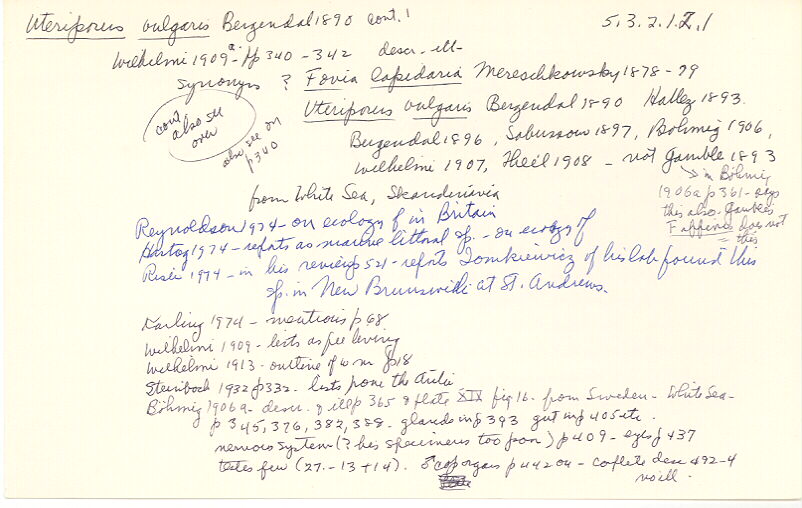 Uteriporus vulgaris Bergendal 1890 cont. 1
5.3.2.1.2.1
Wilhelmi 1909a - pp 340-342 descr. - ill-
synonyms ? Fovia lapidaria Mereschkowsky 1878-79
Uteriporus vulgaris Bergendal 1890 Hallez 1893.
cont also see over
also see on p340
Bergendal 1896, Sabussow 1897, Böhmig 1906,
Wilhelmi 1907, Heil 1908 - not Gamble 1893
from White Sea, Skandinavia
in Böhmig
1906a p361 - says
this also Gambles
F affinis does not
= this
Reynoldson 1974 - on ecology of in Britain
Hartog 1974 - reports as marine littoral sp. - on ecology of
Riser 1974 - in his review p521 - reports Tomkiewicz of his lab found this
sp. in New Brunswick at St. Andrews.
Darling 1974 - mentions p68
Wilhelmi 1909 - lists as free living
Wilhelmi 1913 - outline of w m p18
Steinbock 1932 p332 - lists from the
Böhmig 1906a - descr. & ill p 365 & plate XIX fig 16 - from Sweden - White Sea -
p 345, 376, 382, 388 - glands in p 393 gut in p 405 etc.
nervous system (? his specimens too poor) p 409 - eyes p 437
testes few (27 - 13 + 14). ♂ cop organs p 442 on - complete desc 492-4
no ill.